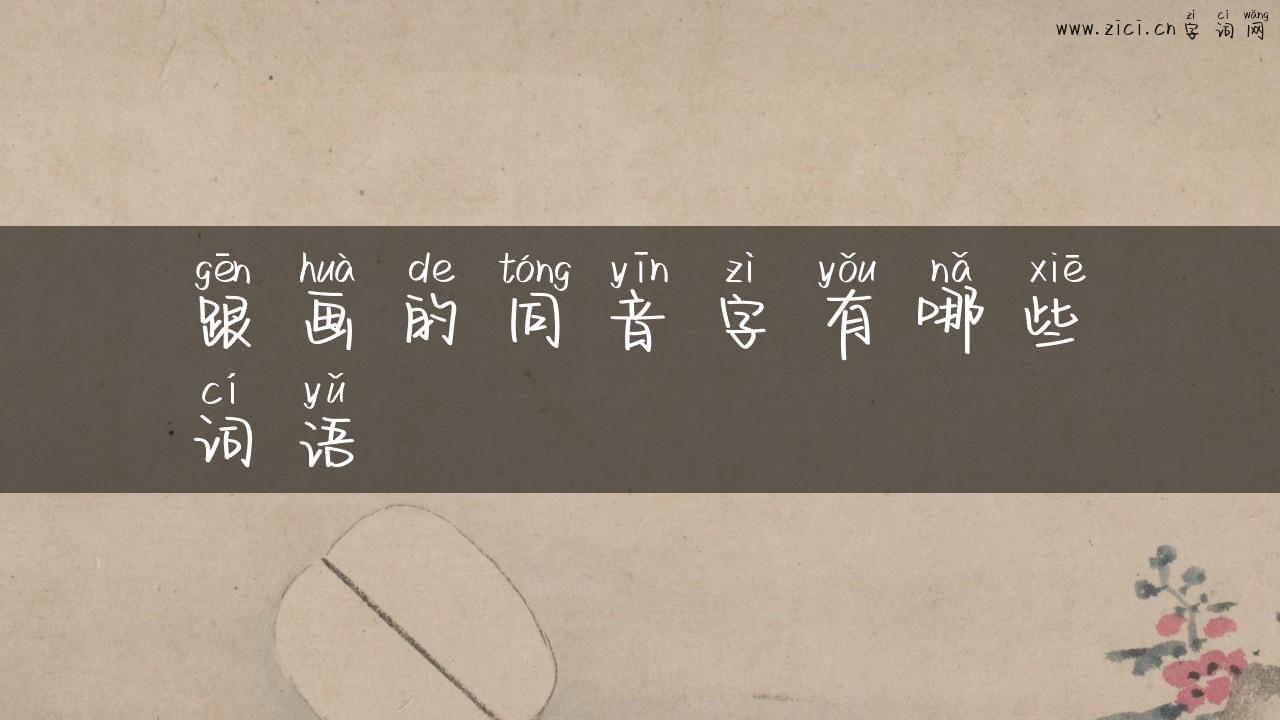 zì cí wǎng
www.zici.cn字词网
gēn huà de tóng yīn zì yǒu nǎ xiē
跟画的同音字有哪些
cí yǔ
词语